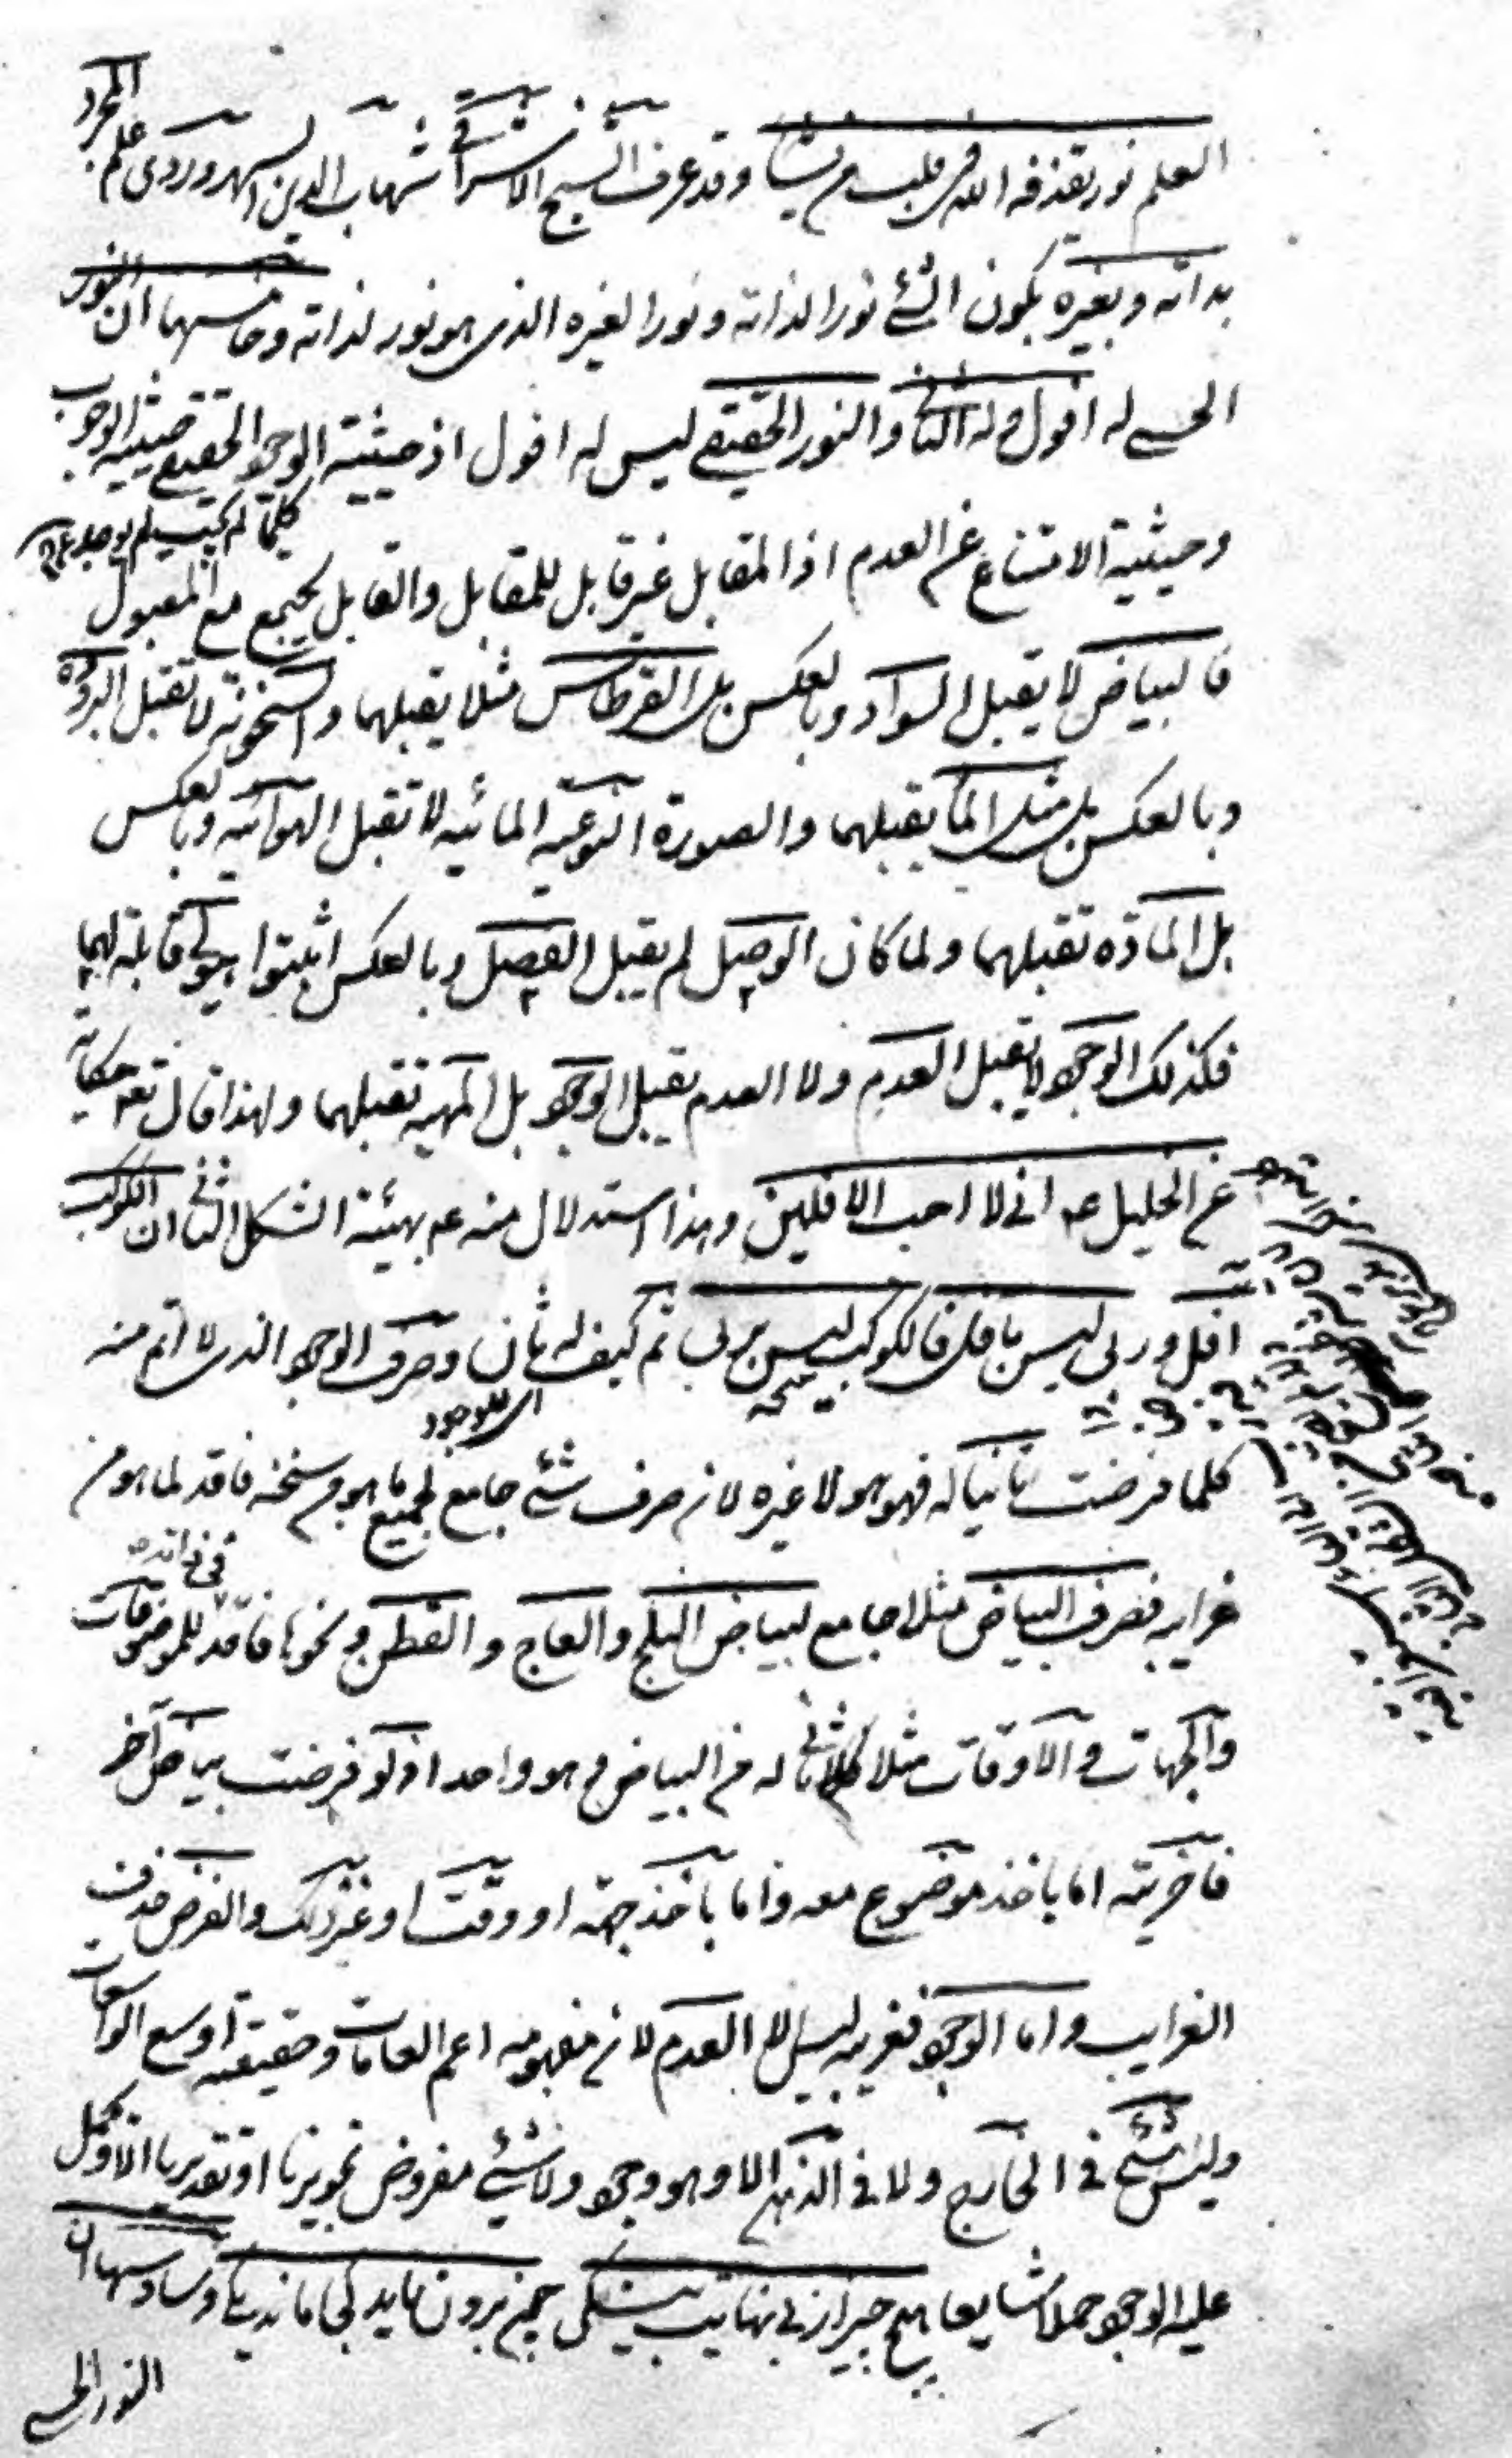 العلم نور يقذفه الله فى قلب من يشاء وقد عرف الشيخ الاشراقى شهاب الدين السهروردى علم المجرد
بذاته وبغيره بكون الشئ نورا لذاته ونورا لغيره الذى هو نور لذاته وخامسها ان النور
الحسى له افول وله الثانى والنور الحقيقى ليس له افول اذ حيثية الوجود الحقيقى حيثية الوجوب
وحيثية الامتناع عن العدم اذ المقابل غير قابل للمقابل والقابل يجتمع مع المقبول
كلما لم يجب لم يوجد
فالبياض لا يقبل السواد وبالعكس بل القرطاس مثلا يقبلهما والسخونة لا تقبل البرودة
وبالعكس بل مثل الماء يقبلهما والصورة النوعية المائية لا تقبل الهوائية وبالعكس
بل المادة تقبلهما ولما كان الوصل لم يقبل الفصل وبالعكس اثبتوا هيولى قابلة لهما
فكذلك الوجود لا يقبل العدم ولا العدم يقبل الوجود بل المهية تقبلهما ولهذا قال تعه حكاية
عن الخليل عه انى لا احب الافلين وهذا استدلال منه عه بهيئة الشكل الثانى ان الكوكب
افل وربى ليس بافل فالكوكب ليس بربى ثم كيف له ثان وصرف الوجود الذى لا اتم منه
كلما فرضت ثانيا له فهو هو لا غيره لان صرف شئ جامع لجميع ما هو من سنخه فاقد لما هو من
اى للوجود
غرايبه فصرف البياض مثلا جامع لبياض الثلج والعاج والقطن ونحوها فاقد للموضوعات
فى ذاته
والجهات والاوقات مثلا فلا ثانى له من البياض وهو واحد اذ لو فرضت بياض آخر
فاخريته اما باخذ موضوع معه واما باخذ جهة او وقت او غير ذلك والفرض حذف
الغرايب واما الوجود فغريبه ليس الا العدم لان مفهومه اعم العامات وحقيقته اوسع الواسعات
وليس شئ فى الخارج ولا فى الذهن الا وهو وجود ولا شئ مفروض تجويزيا او تقديريا الا ويحمل
عليه الوجود حملا شايعا هيچ چيز از بى نهايت بيشكى چون برون نايد كجا ماند يكى وسادسها ان
النور الحسى